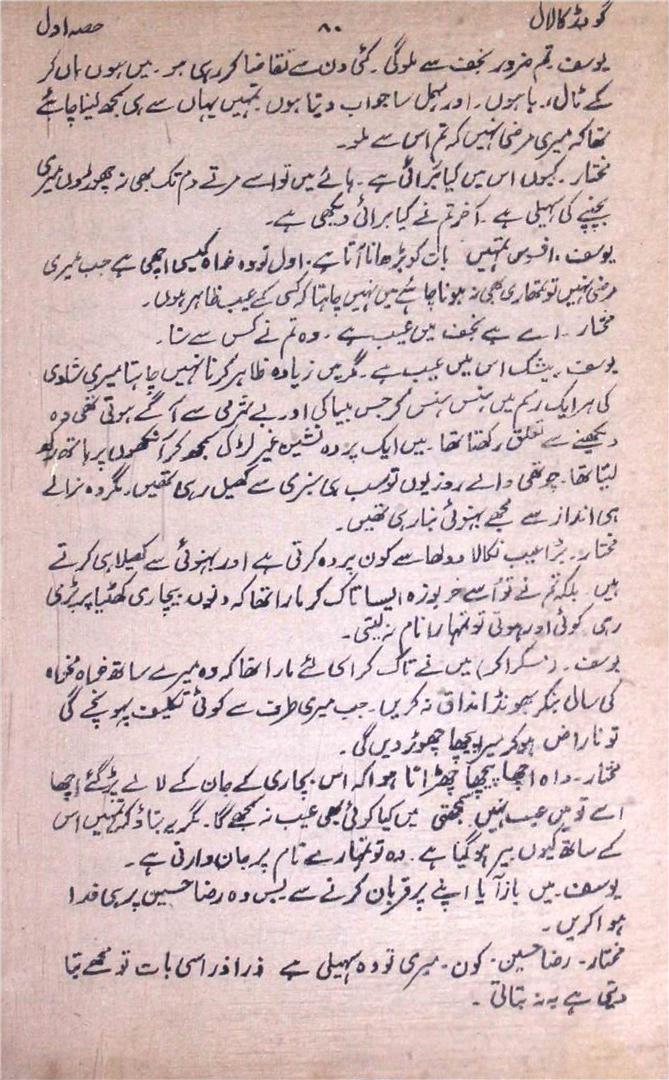 گودڑ کا لال ۸۰ حصہ اول
یوسف۔ تم ضرور نجف سے ملوگی۔ کئی دن سے تقاضا کر رہی ہو۔ میں ہوں ہاں کر
کے ٹال رہا ہوں۔ اور مہمل سا جواب دیتا ہوں تمہیں یہاں سے ہی سمجھ لینا چاہئے
تھا کہ میری مرضی نہیں کہ تم اس سے ملو۔
مختار۔ کیوں اس میں کیا بُرائی ہے۔ ہائے میں تو اسے مرتے دم تک بھی نہ چھوڑوں میری
بچپنے کی سہیلی ہے۔ آخر تم نے کیا برائی دیکھی ہے۔
یوسف۔ افسوس تمہیں بات کو بڑھانا آتا ہے۔ اول تو وہ خواہ کیسی اچھی ہے جب میری
مرضی نہیں تو تمھاری بھی نہ ہونا چاہئے میں نہیں چاہتا کہ کسی کے عیب ظاہر ہوں۔
مختار۔ اے ہے نجف میں عیب ہے۔ وہ تم نے کس سے سنا۔
یوسف۔ بیشک اس میں عیب ہے۔ مگر میں زیادہ ظاہر کرنا نہیں چاہتا میری شادی
کی ہر ایک رسم میں ہنس ہنس کر جس بیباکی اور بے شرمی سے آگے ہوتی تھی وہ
دیکھنے سے تعلق رکھتا تھا۔ میں ایک پردہ نشین غیر لڑکی سمجھ کر آنکھوں پر ہاتھ رکھ
لیتا تھا۔ چوتھی والے روز یوں تو سب ہی سبزی سے کھیل رہی تھیں۔ مگر وہ نرالے
ہی انداز سے مجھے بہنوئی بنا رہی تھیں۔
مختار۔ بڑا عیب نکالا دولھا سے کون پردہ کرتی ہے اور بہنوئی سے کھیلا ہی کرتے
ہیں۔ بلکہ تم نے تو اُسے خربوزہ ایسا تاک کر مارا تھا کہ دنوں بیچاری کھٹیا پر پڑی
رہی کوئی اور ہوتی تو تمہارا نام نہ لیتی۔
یوسف۔ (مسکرا کر) میں نے تاک کر اسی لئے مارا تھا کہ وہ میرے ساتھ خواہ مخواہ
کی سالی بنکر بھونڈا مذاق نہ کریں۔ جب میری طرف سے کوئی تکلیف پہونچے گی
تو ناراض ہو کر میرا پیچھا چھوڑ دیں گی۔
مختار۔ واہ اچھا پیچھا چھڑانا ہوا کہ اس بچاری کے جان کے لالے پڑ گئے اچھا
اسے تو میں عیب نہیں سمجھتی میں کیا کوئی بھی عیب نہ سمجھے گا۔ مگر یہ بتاؤ کہ تمہیں اس
کے ساتھ کیوں بیر ہو گیا ہے۔ وہ تو تمہارے نام پر جان وارتی ہے۔
یوسف۔ میں باز آیا اپنے پر قربان کرنے سے بس وہ رضا حسین پر ہی فدا
ہوا کریں۔
مختار۔ رضا حسین۔ کون۔ میری تو وہ سہیلی ہے ذرا ذرا سی بات تو مجھے بتا
دیتی ہے یہ نہ بتاتی۔